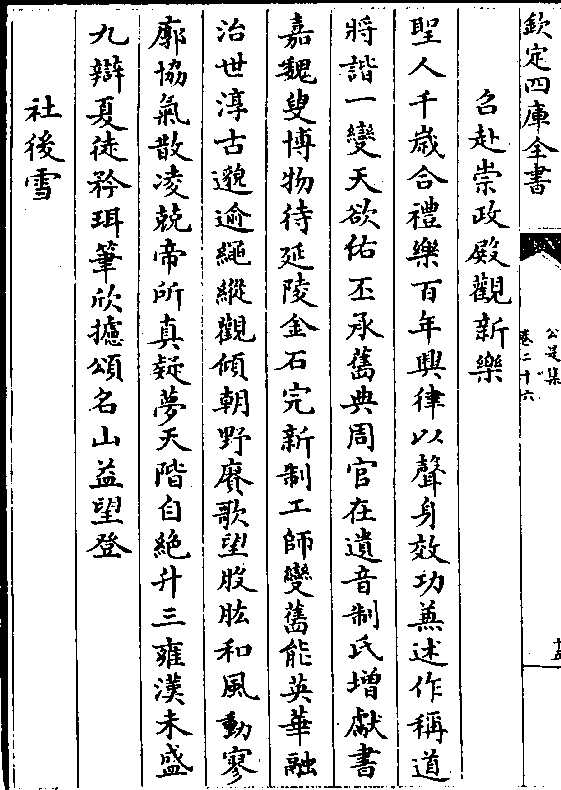 欽定四庫全書
公是集
卷二十六
召赴崇政殿觀新樂
聖人千歲合禮樂百年興律以聲身效功兼述作稱道
將諧一變天欲佑丕承舊典周官在遺音制氏增獻書
嘉魏叟博物待延陵金石完新制工師變舊能英華融
治世淳古邈逾繩縱觀傾朝野賡歌望股肱和風動寥
廓協氣散凌兢帝所真疑夢天階自絶升三雍漢未盛
九辯夏徒矜珥筆欣攄頌名山益望登
社後雪